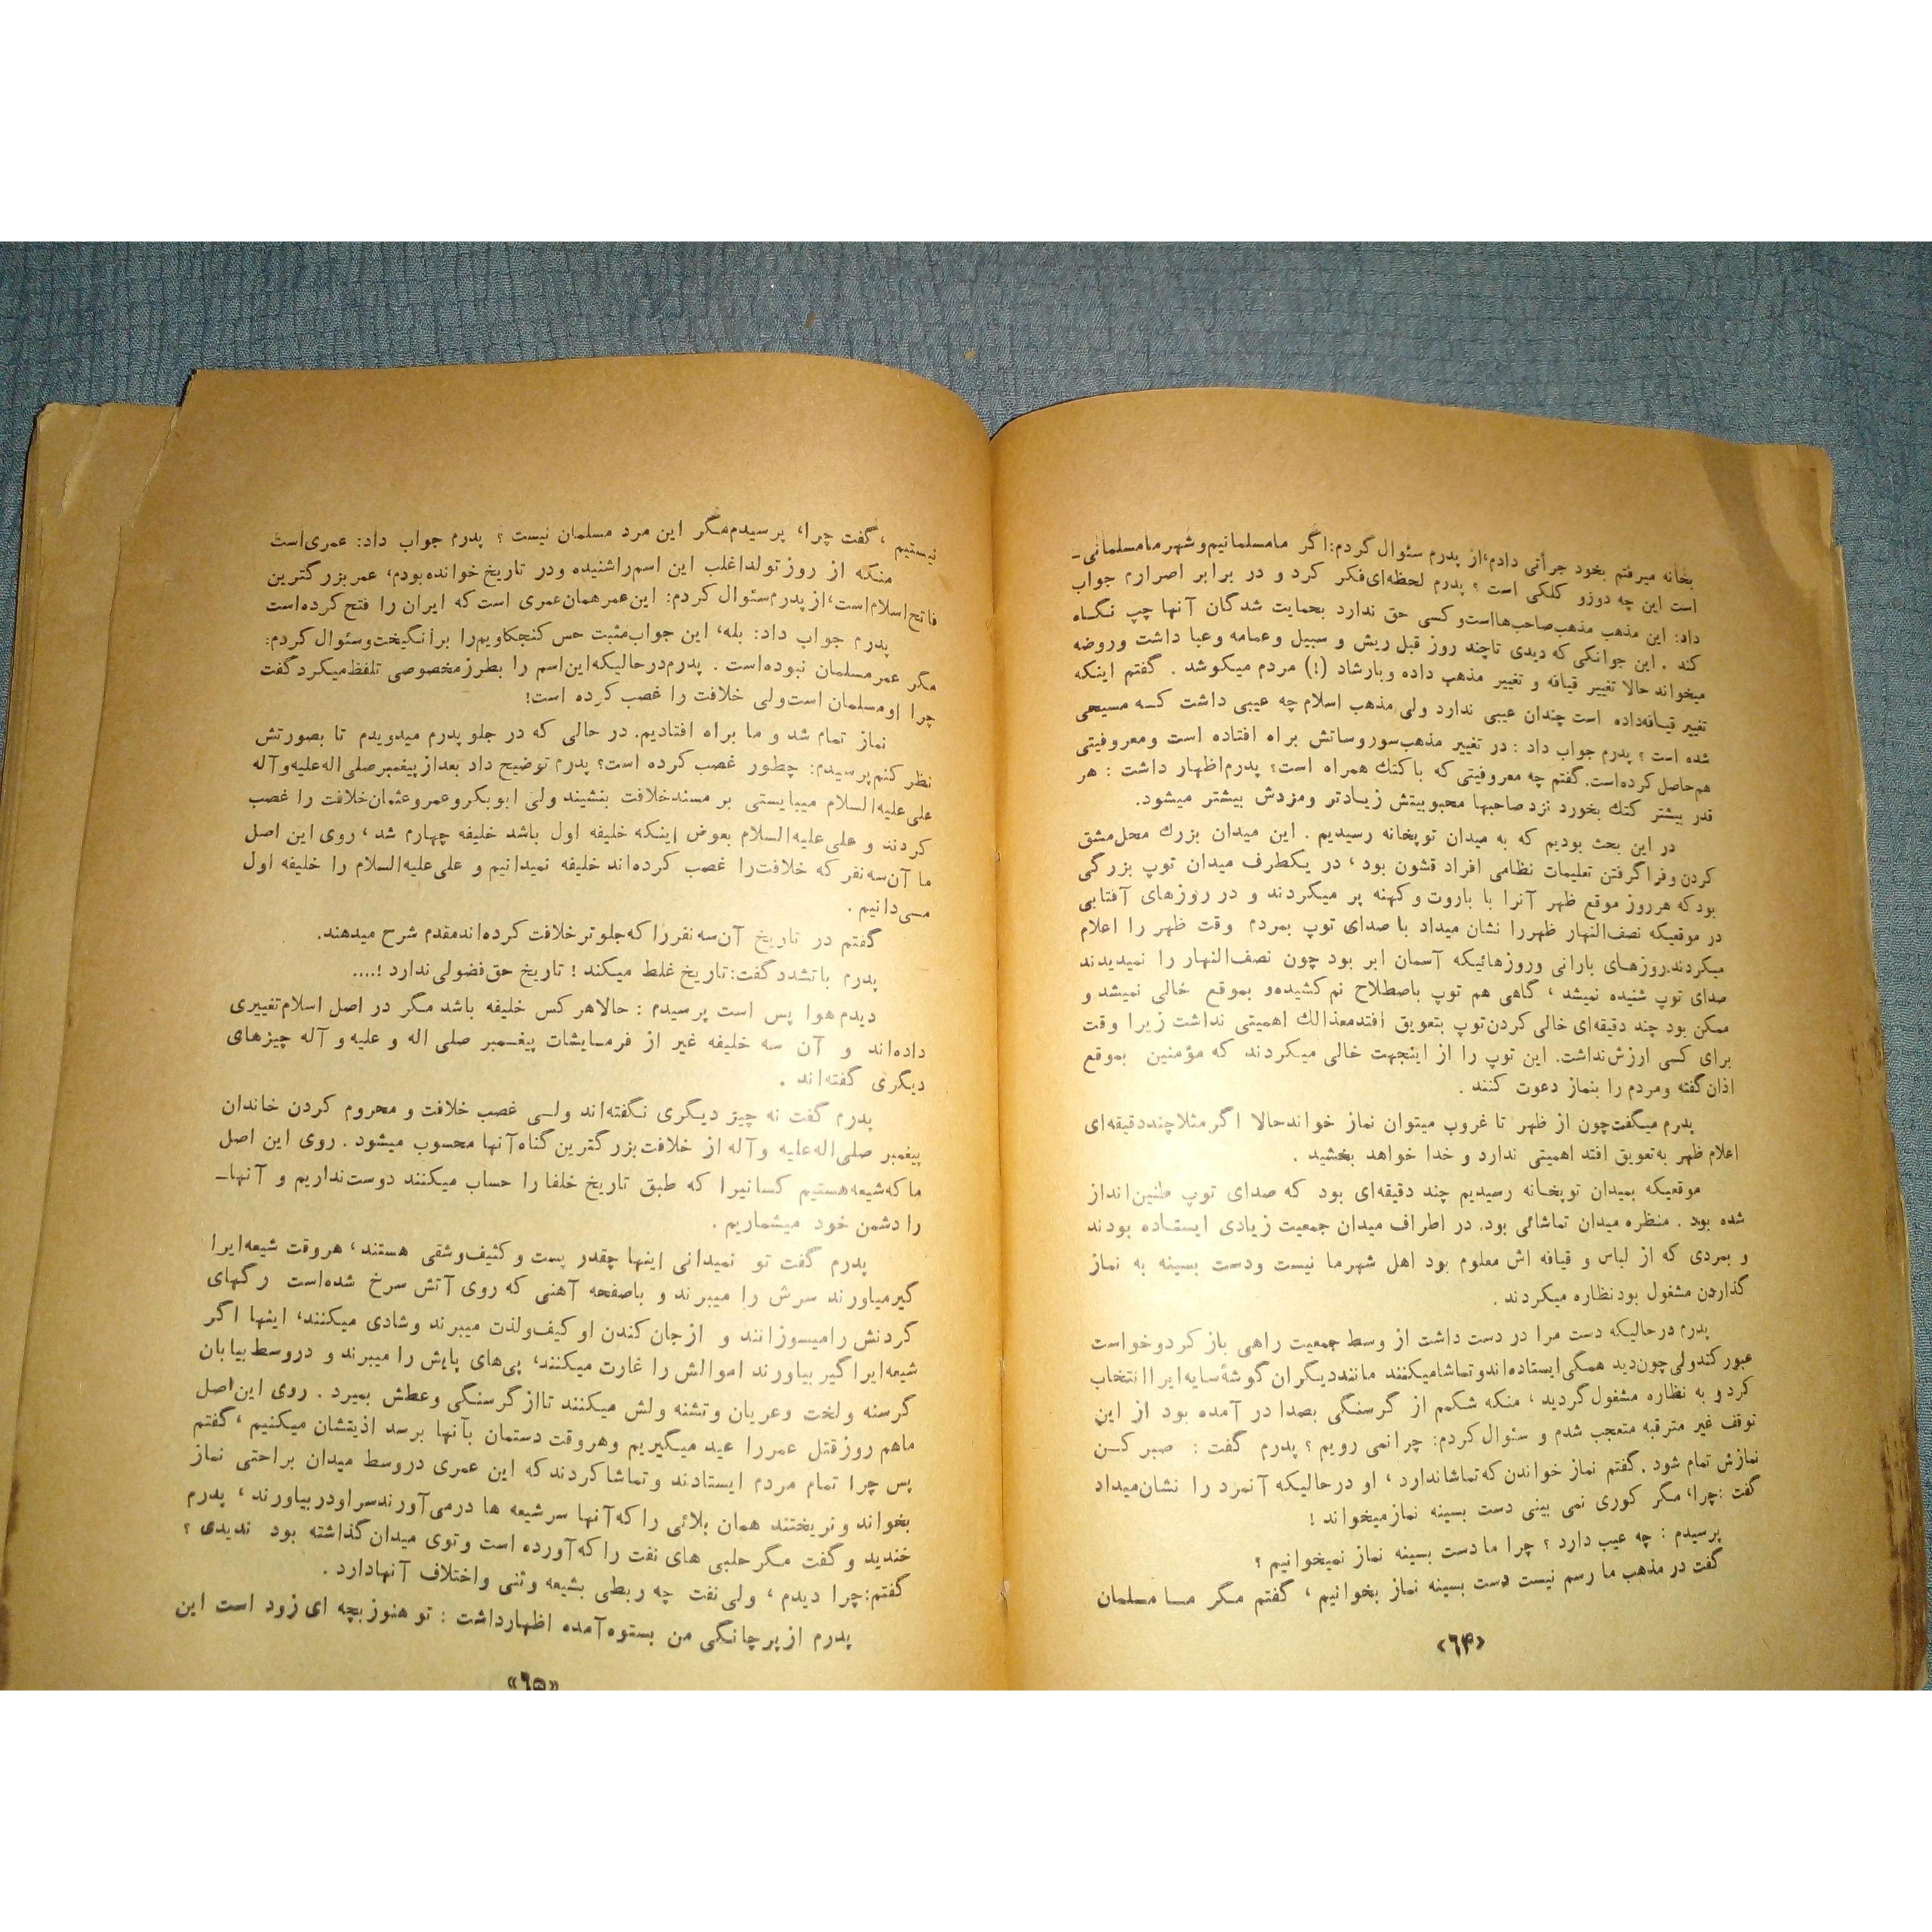 بخانه میرفتم بخود جرأتی دادم،از پدرم سئوال کردم:اگر مامسلمانیم‌وشهرمامسلمانی-
است این چه دوزو کلکی است ؟ پدرم لحظه‌ای‌فکر کرد و در برابر اصرارم جواب
داد: این مذهب مذهب‌صاحب‌هااست‌و کسی حق ندارد بحمایت شدگان آنها چپ نگاه
کند . این جوانکی که دیدی تاچند روز قبل ریش و سبیل وعمامه وعبا داشت وروضه
میخواند حالا تغییر قیافه و تغییر مذهب داده وبارشاد (!) مردم میکوشد . گفتم اینکه
تغییر قیافه‌داده است چندان عیبی ندارد ولی مذهب اسلام چه عیبی داشت که مسیحی
شده است ؟ پدرم جواب داد : در تغییر مذهب‌سوروساتش براه افتاده است ومعروفیتی
هم‌حاصل کرده‌است. گفتم چه معروفیتی که باکتك همراه است؟ پدرم‌اظهار داشت : هر
قدر بیشتر کتك بخورد نزد صاحبها محبوبیتش زیادتر ومزدش بیشتر میشود.
در این بحث بودیم که به میدان توپخانه رسیدیم . این میدان بزرك محل‌مشق
کردن‌وفراگرفتن تعلیمات نظامی افراد قشون بود ، در یکطرف میدان توپ بزرگی
بودکه هرروز موقع ظهر آنرا با باروت وکهنه پر میکردند و در روزهای آفتابی
در موقعیکه نصف‌النهار ظهررا نشان میداد با صدای توپ بمردم وقت ظهر را اعلام
میکردند.روزهای بارانی وروزهائیکه آسمان ابر بود چون نصف‌النهار را نمیدیدند
صدای توپ شنیده نمیشد ، گاهی هم توپ باصطلاح نم کشیده‌و بموقع خالی نمیشد و
ممکن بود چند دقیقه‌ای خالی کردن‌توپ بتعویق افتدمعذالك اهمیتی نداشت زیرا وقت
برای کسی ارزش‌نداشت. این توپ را از اینجهت خالی میکردند که مؤمنین بموقع
اذان‌گفته ومردم را بنماز دعوت کنند .
پدرم میگفت‌چون از ظهر تا غروب میتوان نماز خواندحالا اگرمثلاچنددقیقه‌ای
اعلام ظهر به‌تعویق افتد اهمیتی ندارد و خدا خواهد بخشید .
موقعیکه بمیدان توپخانه رسیدیم چند دقیقه‌ای بود که صدای توپ طنین‌انداز
شده بود . منظره میدان تماشائی بود. در اطراف میدان جمعیت زیادی ایستاده بودند
و بمردی که از لباس و قیافه اش معلوم بود اهل شهرما نیست ودست بسینه به نماز
گذاردن مشغول بودنظاره میکردند .
پدرم درحالیکه دست مرا در دست داشت از وسط جمعیت راهی باز کردوخواست
عبورکندولی‌چون‌دید همگی‌ایستاده‌اندوتماشامیکنند ماننددیگران گوشهٔ‌سایه‌ایرا‌انتخاب
کرد و به نظاره مشغول گردید ، منکه شکمم از گرسنگی بصدا در آمده بود از این
توقف غیر مترقبه متعجب شدم و سئوال کردم: چرانمی رویم ؟ پدرم گفت : صبر کن
نمازش تمام شود . گفتم نماز خواندن که‌تماشاندارد ، او درحالیکه آنمرد را نشان‌میداد
گفت :چرا، مگر کوری نمی بینی دست بسینه نمازمیخواند !
پرسیدم : چه عیب دارد ؟ چرا ما دست بسینه نماز نمیخوانیم ؟
گفت در مذهب ما رسم نیست دست بسینه نماز بخوانیم ، گفتم مگر ما مسلمان
«۶۴»
نیستیم ، گفت چرا، پرسیدم‌مگر این مرد مسلمان نیست ؟ پدرم جواب داد: عمری‌است
منکه از روز تولد‌اغلب این اسم‌راشنیده ودر تاریخ خوانده‌بودم، عمربزرگترین
فاتح‌اسلام‌است،از پدرم‌سئوال کردم: این‌عمرهمان‌عمری است‌که ایران را فتح کرده‌است
پدرم جواب داد: بله، این جواب‌مثبت حس کنجکاویم‌را برانگیخت‌وسئوال کردم:
مگر عمرمسلمان نبوده‌است . پدرم‌درحالیکه‌این‌اسم را بطرزمخصوصی تلفظ‌میکردگفت
چرا اومسلمان است‌ولی خلافت را غصب کرده است!
نماز تمام شد و ما براه افتادیم. در حالی که در جلو پدرم میدویدم تا بصورتش
نظر کنم‌پرسیدم: چطور غصب کرده است؟ پدرم توضیح داد بعداز پیغمبرصلی‌اله‌علیه‌وآله
علی علیه‌السلام میبایستی بر مسندخلافت بنشیند ولی ابوبکروعمروعثمان‌خلافت را غصب
کردند و علی علیه‌السلام بعوض اینکه خلیفه اول باشد خلیفه چهارم شد ، روی این اصل
ما آن‌سه‌نفر که خلافت‌را غصب کرده‌اند خلیفه نمیدانیم و علی‌علیه‌السلام را خلیفه اول
می‌دانیم .
گفتم در تاریخ آن‌سه نفررا که‌جلوترخلافت کرده‌اندمقدم شرح میدهند.
پدرم باتشدد گفت:تاریخ غلط میکند ! تاریخ حق‌فضولی ندارد !....
دیدم‌هوا پس است پرسیدم : حالاهر کس خلیفه باشد مگر در اصل اسلام‌تغییری
داده‌اند و آن سه خلیفه غیر از فرمایشات پیغمبر صلی اله و علیه و آله چیزهای
دیگری گفته‌اند .
پدرم گفت نه چیز دیگری نگفته‌اند ولی غصب خلافت و محروم کردن خاندان
پیغمبر صلی‌اله‌علیه وآله از خلافت‌بزرگترین‌گناه‌آنها محسوب میشود . روی این اصل
ما که‌شیعه‌هستیم کسانیرا که طبق تاریخ خلفا را حساب میکنند دوست‌نداریم و آنها-
را دشمن خود میشماریم .
پدرم گفت تو نمیدانی اینها چقدر پست و کثیف‌وشقی هستند ، هروقت شیعه‌ایرا
گیرمیاورند سرش را میبرند و باصفحه آهنی که روی آتش سرخ شده‌است رگهای
گردنش رامیسوزانند و ازجان کندن او کیف‌ولذت میبرند وشادی میکنند، اینها اگر
شیعه‌ایراگیر بیاورند اموالش را غارت میکنند، پی‌های پایش را میبرند و دروسط بیابان
گرسنه ولخت وعریان وتشنه ولش میکنند تااز گرسنگی وعطش بمیرد . روی این‌اصل
ماهم روزقتل عمررا عید میگیریم وهروقت دستمان بآنها برسد اذیتشان میکنیم ، گفتم
پس چرا تمام مردم ایستادند وتماشاکردندکه این عمری دروسط میدان براحتی نماز
بخواند ونریختند همان بلائی را که‌آنها سرشیعه ها درمی‌آورندسراودربیاورند ، پدرم
خندید و گفت مگر حلبی های نفت را که‌آورده است وتوی میدان‌گذاشته بود ندیدی ؟
گفتم:چرا دیدم ، ولی نفت چه ربطی بشیعه وسنی واختلاف آنهادارد .
پدرم ازپرچانگی من بستوه‌آمده اظهارداشت : تو هنوزبچه ای زود است این
«۶۵»